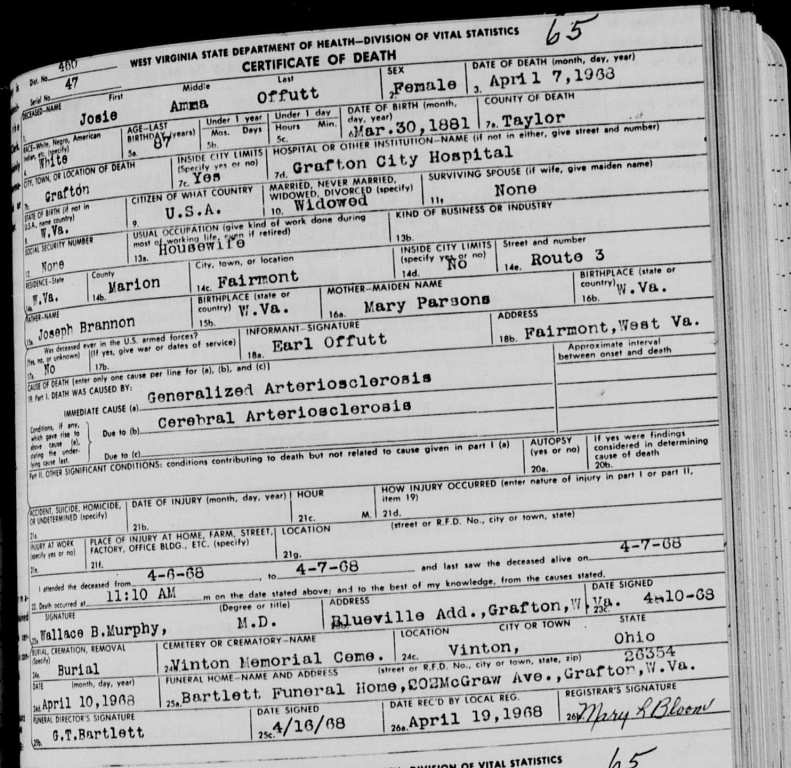 65
WEST VIRGINIA STATE DEPARTMENT OF HEALTH—DIVISION OF VITAL STATISTICS
CERTIFICATE OF DEATH
Dist. No. 460
Serial No. 47
DECEASED—NAME First Middle Last
Josie Amma Offutt
SEX
2. Female
DATE OF DEATH (month, day, year)
3. April 7,1968
RACE—White, Negro, American Indian, etc. (specify)
4. White
AGE—LAST BIRTHDAY (years)
5a. 87
Under 1 year
Mos. Days
5b.
Under 1 day
Hours Min.
5c.
DATE OF BIRTH (month, day, year)
6. Mar.30,1881
COUNTY OF DEATH
7a. Taylor
CITY, TOWN, OR LOCATION OF DEATH
7b. Grafton
INSIDE CITY LIMITS (Specify yes or no)
7c. Yes
HOSPITAL OR OTHER INSTITUTION—NAME (if not in either, give street and number)
7d. Grafton City Hospital
STATE OF BIRTH (if not in U.S.A., name country)
8. W.Va.
CITIZEN OF WHAT COUNTRY
9. U.S.A.
MARRIED, NEVER MARRIED, WIDOWED, DIVORCED (specify)
10. Widowed
SURVIVING SPOUSE (if wife, give maiden name)
11. None
SOCIAL SECURITY NUMBER
12. None
USUAL OCCUPATION (give kind of work done during most of working life, even if retired)
13a. Housewife
KIND OF BUSINESS OR INDUSTRY
13b.
RESIDENCE—State
14a. W.Va.
County
14b. Marion
City, town, or location
14c. Fairmont
INSIDE CITY LIMITS (specify yes or no)
14d. No
Street and number
14e. Route 3
FATHER—NAME
15a. Joseph Brannon
BIRTHPLACE (state or country)
15b. W.Va.
MOTHER—MAIDEN NAME
16a. Mary Parsons
BIRTHPLACE (state or country)
16b. W.Va.
Was deceased ever in the U.S. armed forces?
(Yes, no, or unknown) (If yes, give war or dates of service)
17a. No 17b.
INFORMANT—SIGNATURE
18a. Earl Offutt
ADDRESS
18b. Fairmont,West Va.
CAUSE OF DEATH (enter only one cause per line for (a), (b), and (c))
Approximate interval between onset and death
19. Part I. DEATH WAS CAUSED BY:
IMMEDIATE CAUSE (a) Generalized Arteriosclerosis
Conditions, if any, which gave rise to above cause (a), stating the underlying cause last.
Due to (b) Cerebral Arteriosclerosis
Due to (c)
Part II. OTHER SIGNIFICANT CONDITIONS: conditions contributing to death but not related to cause given in part I (a)
AUTOPSY (yes or no)
20a.
If yes were findings considered in determining cause of death
20b.
ACCIDENT, SUICIDE, HOMICIDE, OR UNDETERMINED (specify)
21a.
DATE OF INJURY (month, day, year)
21b.
HOUR
21c. M.
HOW INJURY OCCURRED (enter nature of injury in part I or part II, item 19)
21d.
INJURY AT WORK (specify yes or no)
21e.
PLACE OF INJURY AT HOME, FARM, STREET, FACTORY, OFFICE BLDG., ETC. (specify)
21f.
LOCATION (street or R.F.D. No., city or town, state)
21g.
I attended the deceased from 4-6-68 to 4-7-68 and last saw the deceased alive on 4-7-68
22. Death occurred at 11:10 AM m on the date stated above; and to the best of my knowledge, from the causes stated.
SIGNATURE (Degree or title)
23a. Wallace B.Murphy, M.D.
ADDRESS
Blueville Add.,Grafton,W Va.
DATE SIGNED
23c. 4-10-68
BURIAL, CREMATION, REMOVAL (Specify)
24a. Burial
CEMETERY OR CREMATORY—NAME
Vinton Memorial Ceme.
LOCATION CITY OR TOWN STATE
24c. Vinton, Ohio
DATE (month, day, year)
24d. April 10,1968
FUNERAL HOME—NAME AND ADDRESS (street or R.F.D. No., city or town, state, zip)
26354
25a. Bartlett Funeral Home,202McGraw Ave.,Grafton,W.Va.
FUNERAL DIRECTOR'S SIGNATURE
25b. G.T.Bartlett
DATE SIGNED
25c. 4/16/68
DATE REC'D BY LOCAL REG.
26a. April 19,1968
REGISTRAR'S SIGNATURE
26b. Mary L Bloom
DIVISION OF VITAL STATISTICS
65